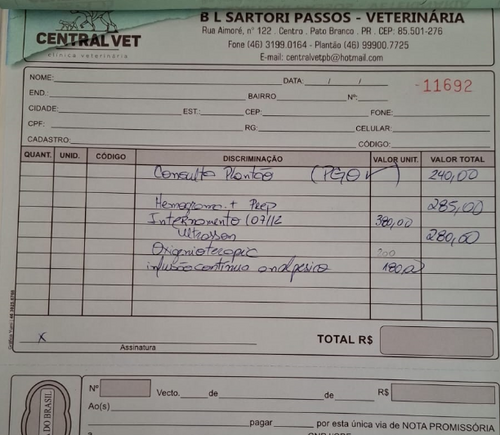 B L SARTORI PASSOS - VETERINÁRIA
CENTRALVET
clínica veterinária
Rua Aimoré, n° 122 . Centro . Pato Branco . PR . CEP: 85.501-276
Fone (46) 3199.0164 - Plantão (46) 99900.7725
E-mail: centralvetpb@hotmail.com
NOME: DATA: / /
-11692
END.: BAIRRO Nº:
CIDADE: EST.: CEP: FONE:
CPF: RG: CELULAR:
CADASTRO: CÓDIGO:
QUANT. UNID. CÓDIGO DISCRIMINAÇÃO VALOR UNIT. VALOR TOTAL
Consulta Plantão (PGO ) 240,00
Hemograma + 285,00
Internamento (07/12 380,00
Ultrasson 280,00
Oxigenioterapia 200
infusão contínua analgesica 180,00
x
Assinatura
TOTAL R$
DO BRASIL
Nº Vecto. de de R$
Ao(s)
pagar por esta única via de NOTA PROMISSÓRIA